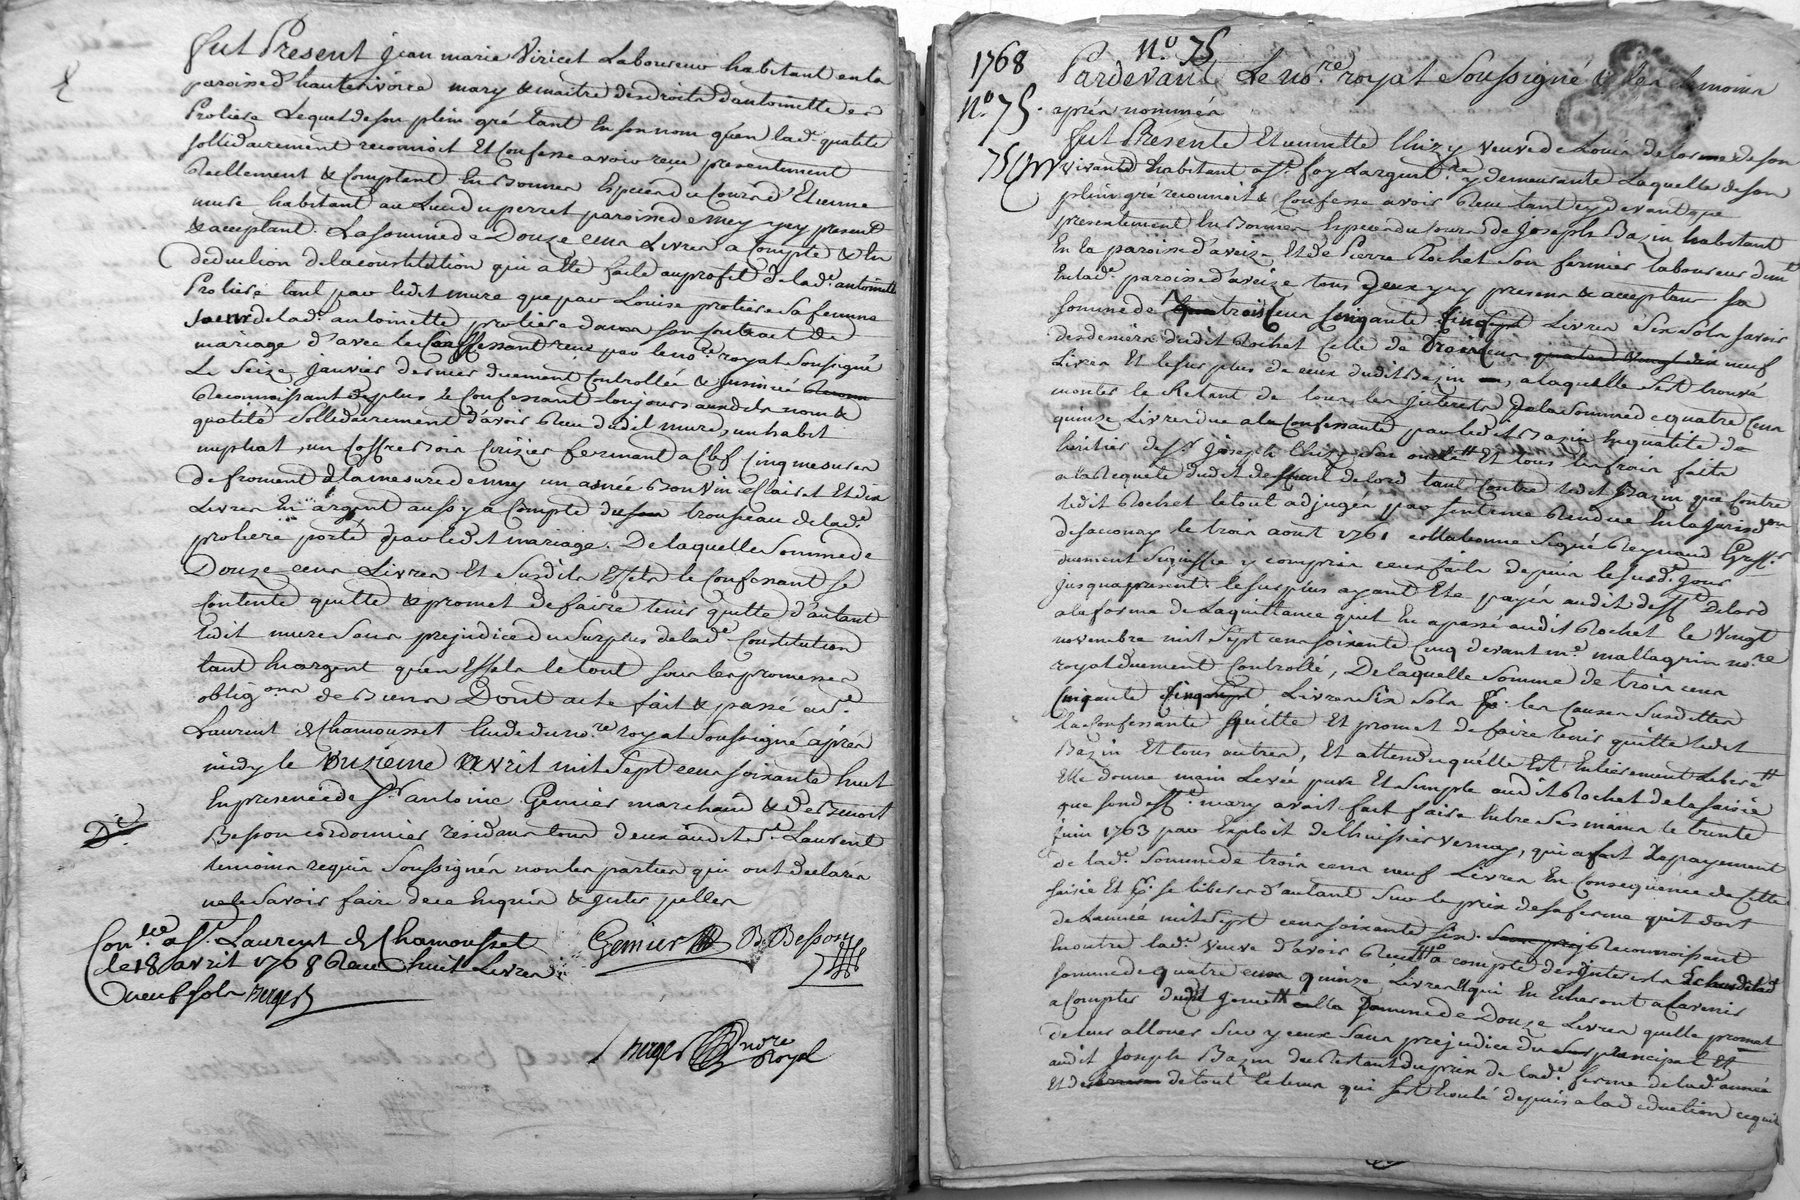 fut Present jean marie Viricel Laboureur habitant en la
paroisse d'hauterivoire mary & maitre des droits d'antoinette
Proliere Lequel de son plein gré tant En son nom qu'en lad.e qualité
sollidairement reconnoit Et Confesse avoir reçu presentement
Reellement & Comptant En Bonnes Espéces du Cours d'Etienne
mure habitant au Lieu du perret paroisse de mey y present
& acceptant. La somme de Douze cens Livres a Compte & En
deduction de la constitution qui a Eté faite au profit de lad.e antoinette
Proliere tant par ledit mure que par Louise proliere sa femme
soeur de lad.e antoinette proliere dans son contract de
mariage d'avec le Confessant reçu par le no.re royal soussigné
Le Seize janvier dernier duement Controllé & insinué
Reconnoissant de plus le Confessant toujours aux dits nom &
qualité sollidairement d'avoir Reçu dudit mure, un habit
nuptial, un Coffre Bois Cerizier fermant a Clef Cinq mesures
de froment a la mesure de mey un anée Bon Vin clairet Et dix
Livres En argent aussy a Compte du trousseau de lad.e
proliere porté par ledit mariage. De laquelle Somme de
Douze cens Livres Et susdits Effets le Confessant se
Contente quitte & promet de faire tenir quitte d'autant
ledit mure sans prejudice du surplus de lad.e Constitution
tant En argent qu'en Effets le tout sous les promesses
oblig.ons de Biens Dont acte fait & passé a S.t
Laurent de Chamousset Etude du no.re royal soussigné après
midy le Onzième Avril mil sept cens soixante huit
En presence de S.r antoine Genier marchand & de Benoit
Besson cordonnier résidans tous deux audit S.t Laurent
temoins requis soussignés non les parties qui ont declaré
ne le savoir faire de ce Enquis & inter pellés
Con.lé a S.t Laurent de Chamousset
le 18 avril 1768 Reçu huit Livres
neuf sols
Genier B. Besson
no.re
Royal
1768
N.o 75.
N.o 75
Pardevant Le no.re royal soussigné & les temoins
après nommés
fut Presente Etiennette veuve de Louis delorme de son
vivant habitant a S.te foy Largent.re y demeurante Laquelle de son
plein gré reconnoit & Confesse avoir Reçu tant cy devant que
presentement En Bonnes Espéces du Cours de Joseph Bazin habitant
En la paroisse d'aveize Et de Pierre Rochet son fermier laboureur dem.t
En lad.e paroisse d'aveize tous deux y presens & acceptans La
somme de trois Cens Cinquante Livres Six sols savoir
des deniers dudit Rochet Celle de Trois Cens neuf
Livres Et le surplus de ceux dudit Bazin, a laquelle s'est trouvé
monter le Restant de tous les interets de la Somme de quatre Cens
quinze Livres due a la Confessante par ledit Bazin En qualité de
héritier de S.r Joseph son oncle Et tous les frais faits
a la Requete dudit deffunt delord tant Contre ledit Bazin que Contre
ledit Rochet le tout adjugés par sentence Rendue En la jurisd.on
le trois aout 1761 collationné signé Reynaud Greff.r
duement signifiée y compris ceux faits depuis le susd.t jour
jusqu'a present. le surplus ayant Eté payé audit deff.t delord
a la forme de la quittance qu'il En a passé audit Rochet le Vingt
novembre mil sept cens soixante Cinq devant m.e no.re
royal duement Controllé, De laquelle Somme de trois cens
Cinquante Livres Six sols p.r les Causes susdittes
la Confessante quitte Et promet de faire tenir quitte ledit
Bazin Et tous autres, Et attendu qu'elle Est Entierement
Elle donne main Levée pure Et simple audit Rochet de la saisie
que son deff.t mary avoit fait faire Entre ses mains le trente
juin 1763 par Exploit de l'huissier Vernay, qui a fait le payement
de lad.e somme de trois cens neuf Livres En Consequence de Cette
saisie Et p.r se liberer d'autant sur le prix de sa ferme qu'il doit
de L'année mil sept cens soixante six. Reconnoissant
En outre lad.e veuve d'avoir Reçu a compte des interets Echus de lad.e
somme de quatre cens quinze Livres qui En Echeront a l'avenir
a Compter la Somme de Douze Livres qu'elle promet
de leur allouer sur yceux sans prejudice du principal Et
audit Joseph Bazin du Restant du prix de lad.e ferme de lad.e année
Et de tout le tems qui s'est Ecoulé depuis a la deduction ce qu'il